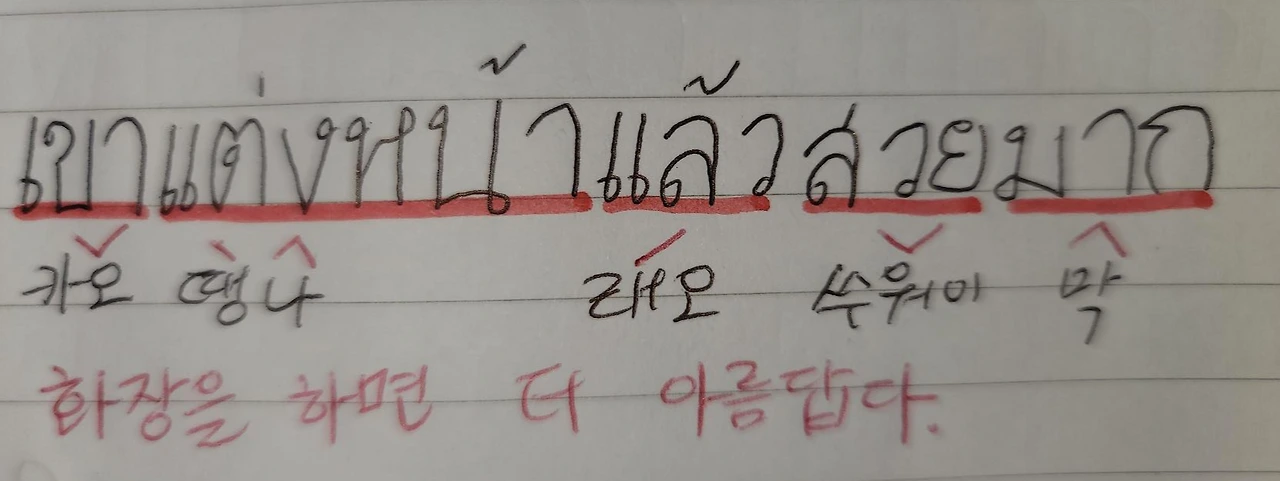 เขาแต่งหน้าแล้วสวยมาก
카오 땡나 래오 쑤워이 막
화장을 하면 더 아름답다.